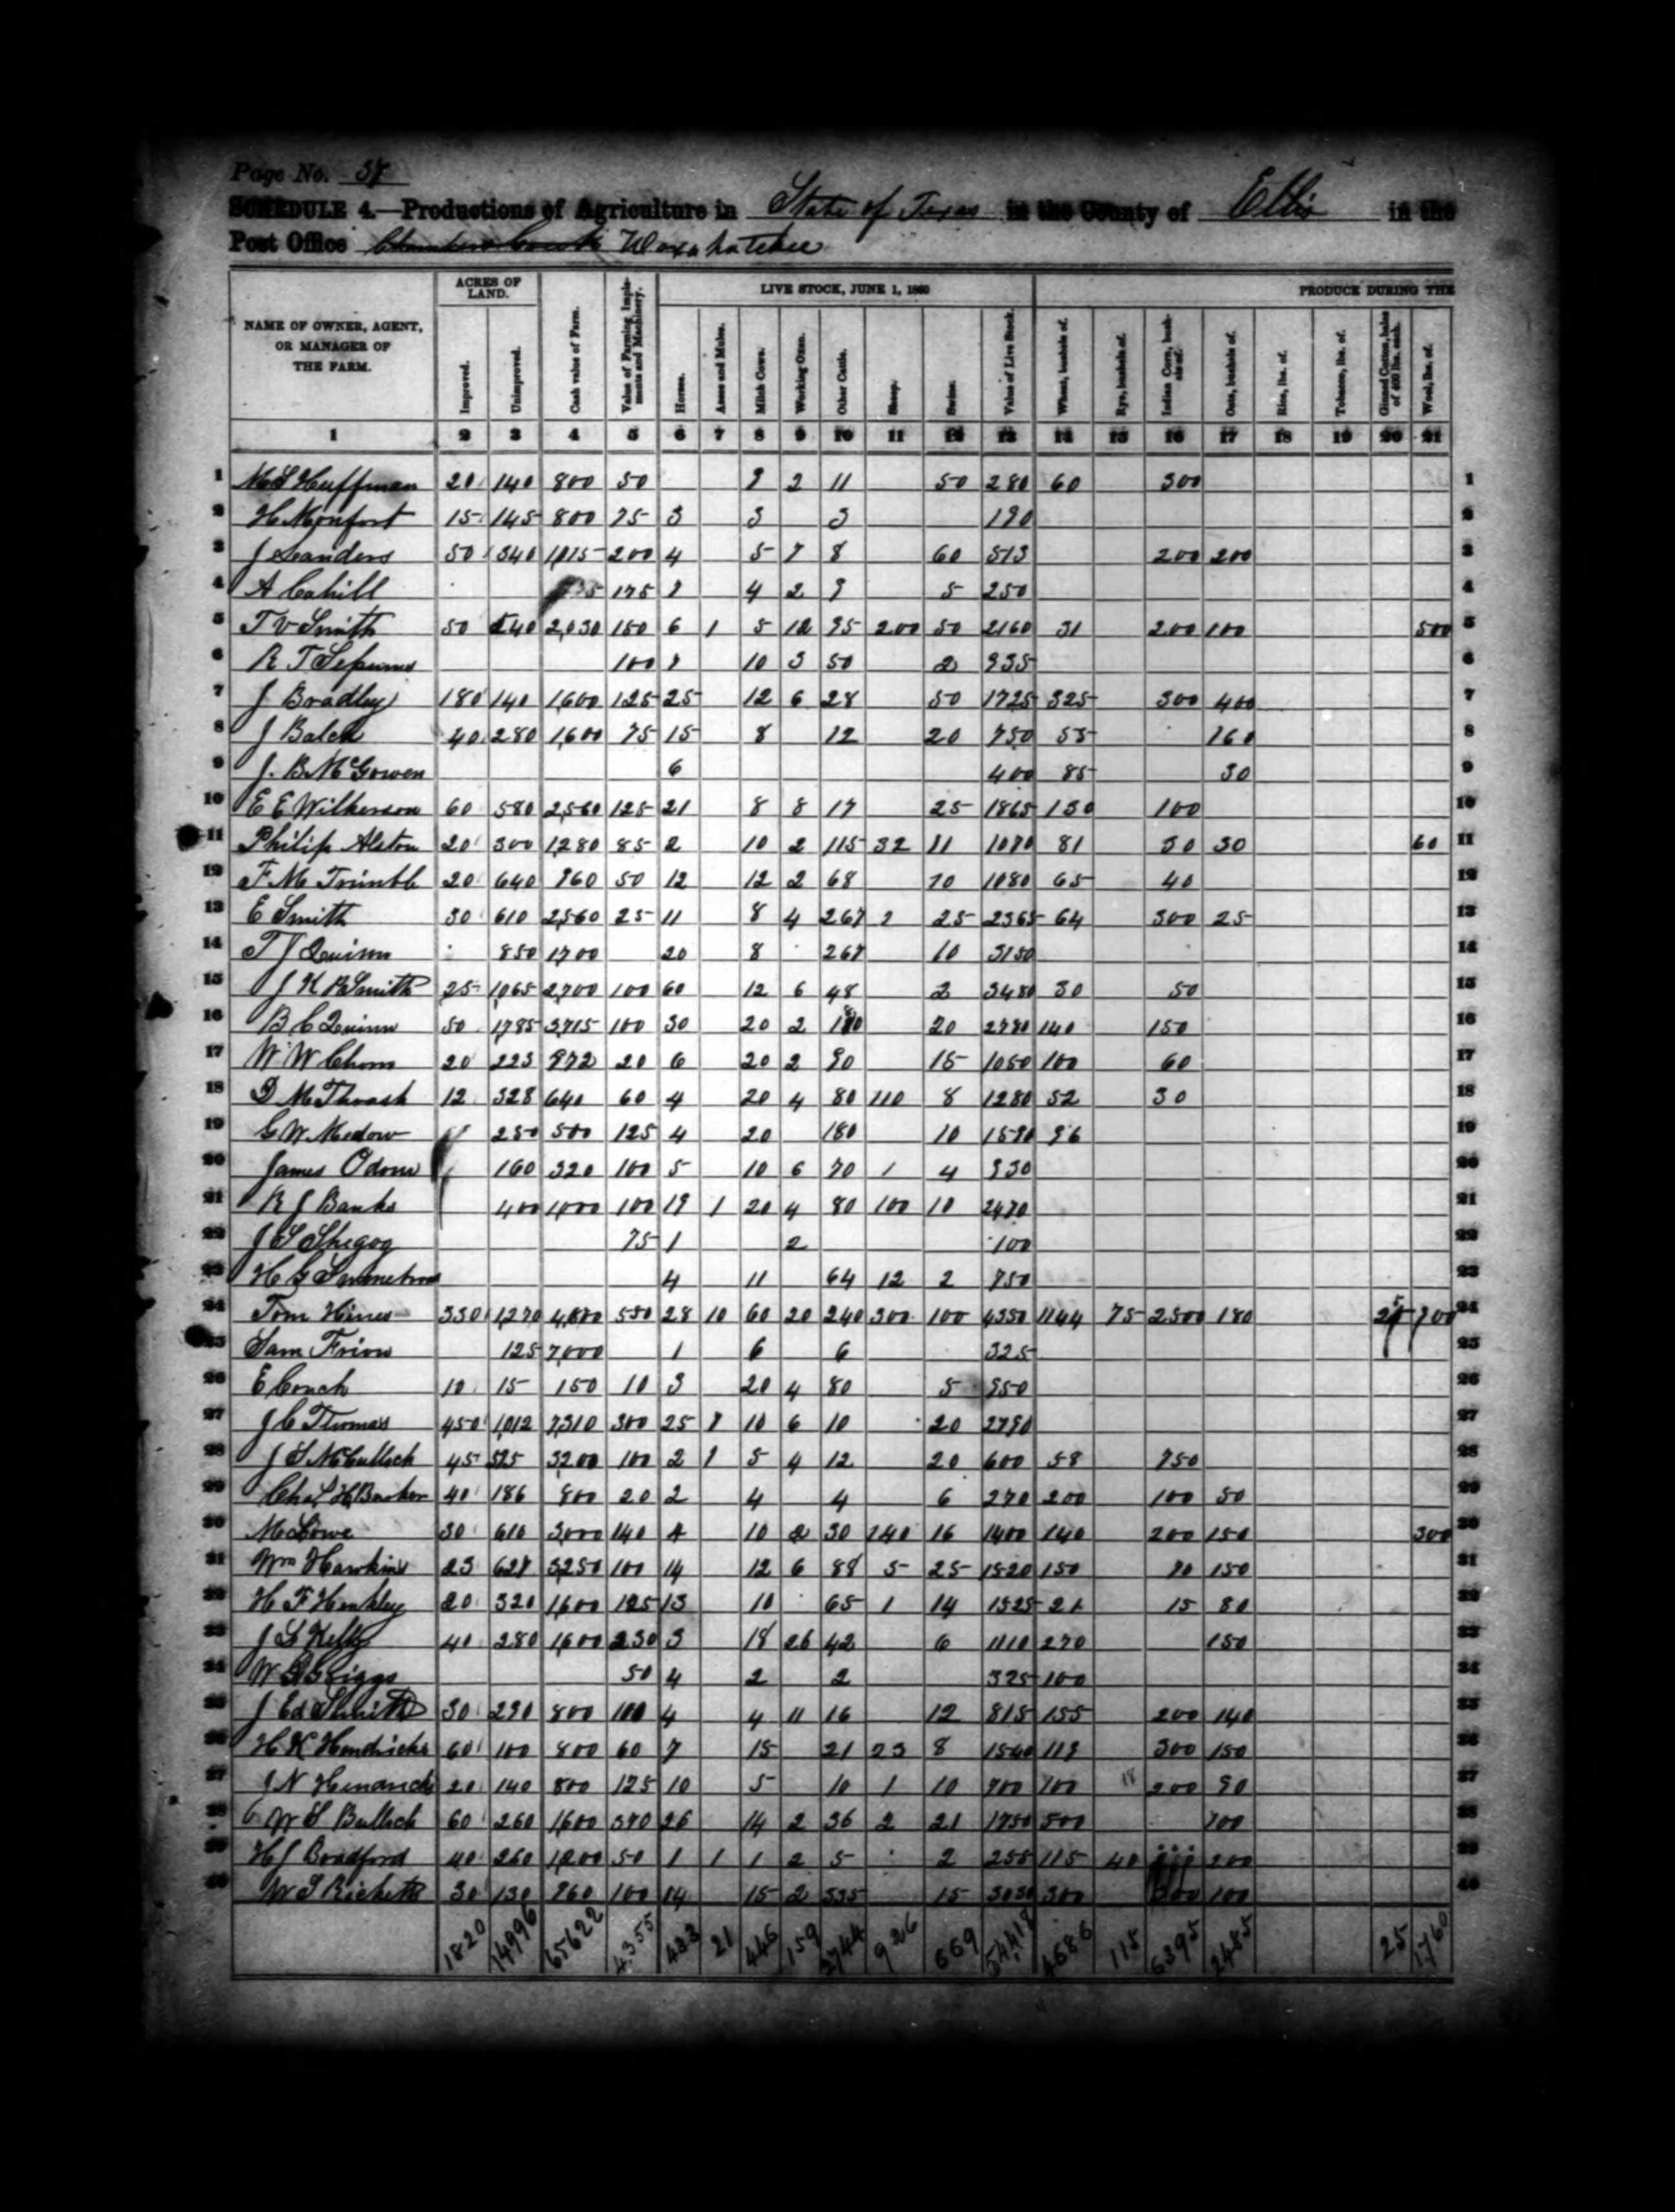 Page No. 37
SCHEDULE 4.—Productions of Agriculture in State of Texas in the County of Ellis in the
Post Office Waxahatchee
NAME OF OWNER, AGENT, OR MANAGER OF THE FARM. ACRES OF LAND. Improved. Unimproved. Cash value of Farm. Value of Farming Implements and Machinery. LIVE STOCK, JUNE 1, 1860 Horses. Asses and Mules. Milch Cows. Working Oxen. Other Cattle. Sheep. Swine. Value of Live Stock. PRODUCE DURING THE Wheat, bushels of. Rye, bushels of. Indian Corn, bushels of. Oats, bushels of. Rice, lbs. of. Tobacco, lbs. of. Ginned Cotton, bales of 400 lbs. each. Wool, lbs. of.
1 2 3 4 5 6 7 8 9 10 11 12 13 14 15 16 17 18 19 20 21
1 Huffman 20 140 800 50 9 2 11 50 280 60 300 1
2 H Monfort 15 145 800 75 3 3 3 190 2
3 J Sanders 50 340 200 4 5 7 8 60 513 200 200 3
4 A Cahill 175 4 2 9 5 250 4
5 T V Smith 50 540 2,030 150 6 1 5 12 95 200 50 2160 31 200 100 500 5
6 R T 100 10 3 50 2 935 6
7 J Bradley 180 140 1,600 125 25 12 6 28 50 1725 325 300 400 7
8 J Balch 40 280 1,600 75 15 8 12 20 750 55 160 8
9 J. B. McGowen 6 400 85 30 9
10 E E Wilkerson 60 580 2,560 125 21 8 8 17 25 1865 130 100 10
11 Philip Alston 20 300 1280 85 2 10 2 115 32 11 1070 81 30 30 60 11
12 F. M. Trimble 20 640 960 50 12 12 2 68 70 1080 65 40 12
13 E Smith 30 610 2,560 25 11 8 4 267 2 25 2365 64 300 25 13
14 T J Quinn 850 1700 20 8 267 10 3150 14
15 J K Smith 25 1,065 2,700 100 60 12 6 48 2 3480 30 50 15
16 B C Quinn 50 1,785 3,715 100 30 20 2 20 2780 140 150 16
17 W W Chom 20 223 972 20 6 20 2 90 15 1050 100 60 17
18 D M Thrash 12 328 640 60 4 20 4 80 110 8 1280 52 30 18
19 G W Medow 250 500 125 4 20 180 10 1590 96 19
20 James Odom 160 320 100 5 10 6 70 1 4 930 20
21 R J Banks 400 1,000 100 19 1 20 4 80 100 10 2470 21
22 J S Shegog 75 1 2 100 22
23 H G 4 11 64 12 2 750 23
24 Tom Hines 330 1,270 4,800 550 28 10 60 20 240 300 100 4350 1144 75 2500 180 25 900 24
25 Sam Frion 125 7,000 1 6 6 325 25
26 E Couch 10 15 150 10 3 20 4 80 5 950 26
27 J C Thomas 450 1,012 7,310 300 25 7 10 6 10 20 2790 27
28 J S McCulloch 45 525 3200 100 2 1 5 4 12 20 600 58 750 28
29 Chas H Barker 40 186 800 20 2 4 4 6 270 200 100 50 29
30 M Lowe 30 610 3,000 140 4 10 2 30 140 16 1400 140 200 150 300 30
31 Wm Hawkins 23 627 3,250 100 14 12 6 88 5 25 1520 150 70 150 31
32 H F Hinkley 20 320 1,600 125 13 10 65 1 14 1525 21 15 80 32
33 J S Kelly 40 280 1,600 230 3 18 26 42 6 1110 270 150 33
34 W Griggs 50 4 2 2 325 100 34
35 J Ed Smith 30 290 800 100 4 4 11 16 12 815 155 200 140 35
36 H K Hendricks 60 100 800 60 7 15 21 23 8 1540 119 300 150 36
37 J N 20 140 800 125 10 5 10 1 10 700 100 200 90 37
38 W S Bulloch 60 260 1,600 370 26 14 2 36 2 21 1750 500 700 38
39 H J Bradford 40 260 1,200 50 1 1 1 2 5 2 255 115 40 200 39
40 W S Ricketts 30 130 960 100 14 15 2 535 15 3030 300 200 100 40
1820 14996 65622 4,355 433 21 446 159 2744 926 669 54,418 4686 115 6395 2485 25 1760